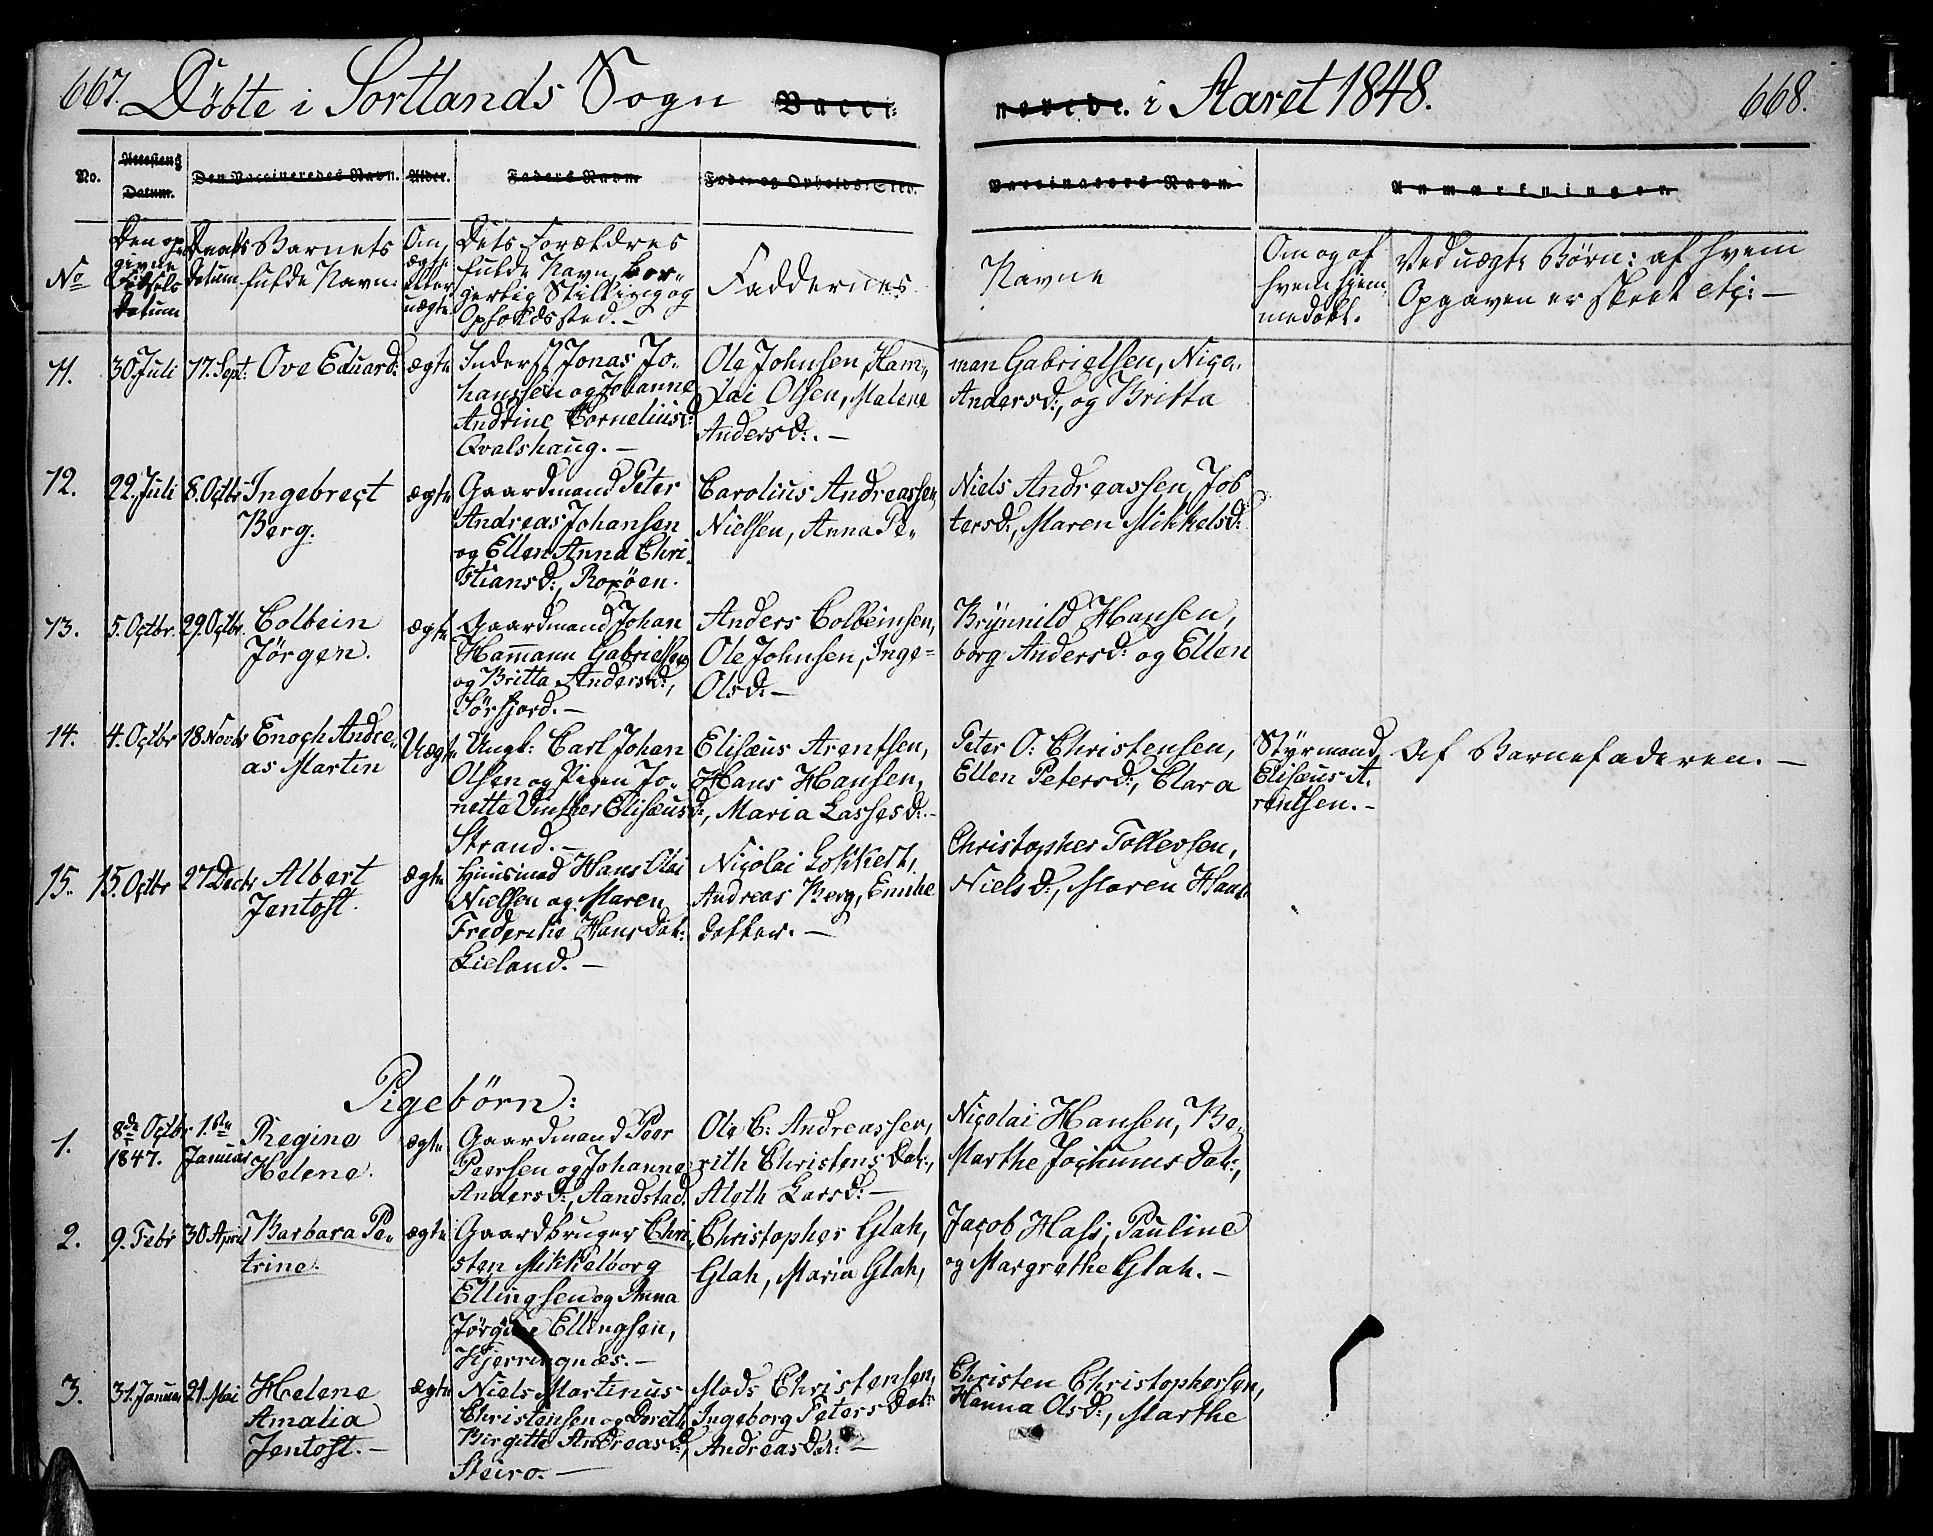 667. Döbte i Sortlands Sogn Vacci-
nerede. i Aaret 1848. 668.
No. Attestens Datum. Den Vaccineredes Navn. Alder. Faders Navn. Føde- og Opholds-Sted. Vaccinateurs Navn. Anmærkninger.
No
Den op-
givne
Fødsels
Datum
Daabs
Datum
Barnets
fulde Navn.
Om
ægte
eller
uægte
Dets Forældres
fulde Navn, bor-
gerlig Stilling og
Opholdssted. –
Faddernes
Navne
Om og af
hvem hjem-
medøbt.
Ved uægte Børn: af hvem
Opgaven er skeet etc: –
11. 30 Juli 17. Sept: Ove Eduard: ægte
Inderst Jonas Jo-
hanssen og Johanne
Andrine Corneliusd:
Qvalshaug. –
Ole Johnsen, Ham-
Olai Olsen, Malene
Andersd:. –
man Gabrielsen,
Andersd:, og Britta
12. 22. Juli 8. Octbr Ingebrect
Berg.
ægte
Gaardmand Peter
Andreas Johansen
og Ellen Anna Chri-
stiansd:, Roxöen.
Carolius Andreassen,
Nielsen, Anna Pe-
Niels Andreassen, Job
tersd:, Maren Mikkelsd:
13. 5. Octbr. 29. Octbr. Colbein
Jörgen.
ægte
Gaardmand Johan
Hamann Gabrielsen
og Britta Andersd:,
Sörfjord. –
Anders Colbeinsen,
Ole Johnsen, Inge-
Olsd: –
Brynnild Hansen,
borg Andersd: og Ellen
14. 4. Octbr 18 Novbr Enoch Andre-
as Martin
Uægte
Ungk: Carl Johan
Olsen og Pigen Jo-
nette Vinther Elisæusd:,
Strand. –
Elisæus Arentsen,
Hans Hansen,
Maria Lassesd: –
Peter O: Christensen,
Ellen Petersd:, Clara
Styrmand
Elisæus A-
rentsen. –
Af Barnefaderen. –
15. 15. Octbr 27 Decbr Albert
Jentoft.
ægte
Huusmad Hans Olai
Nielsen og Maren
Frederike Hans Dat:
Lieland. –
Nicolai Lokkert,
Andreas Berg,
datter. –
Christopher Tollevsen,
Nielsd:, Maren Hans
Pigebörn:
1. 8de Octbr
1847.
1ste
Januar
Regine
Helene.
ægte
Gaardmand Peer
Peersen og Johanne
Andersd:, Aandstad.
Ole C: Andreassen,
rith Christens Dat:,
Aleth Larsd: –
Nicolai Hansen, Be-
Marthe Jochums Dat:,
2. 9. Febr 30 April Barbara Pe-
trine.
ægte
Gaardbruger Chri-
sten Mikkelborg
Ellingsen og Anna
Jörgine Ellingsen,
Kjerringnæs. –
Christopher Glah,
Glah, Maria Glah,
Jacob Hass, Pauline
og Margrethe Glah. –
3. 31. Januar 21. Mai Helene
Amalia
Jentoft. –
ægte
Niels Martinus
Christensen og Doreth
Birgitte Andreasd:,
Steiro. –
Mads Christensen,
Ingeborg Peters Dat:
Andreas Dat: –
Christen Christophersen,
Hanna Olsd:, Marthe